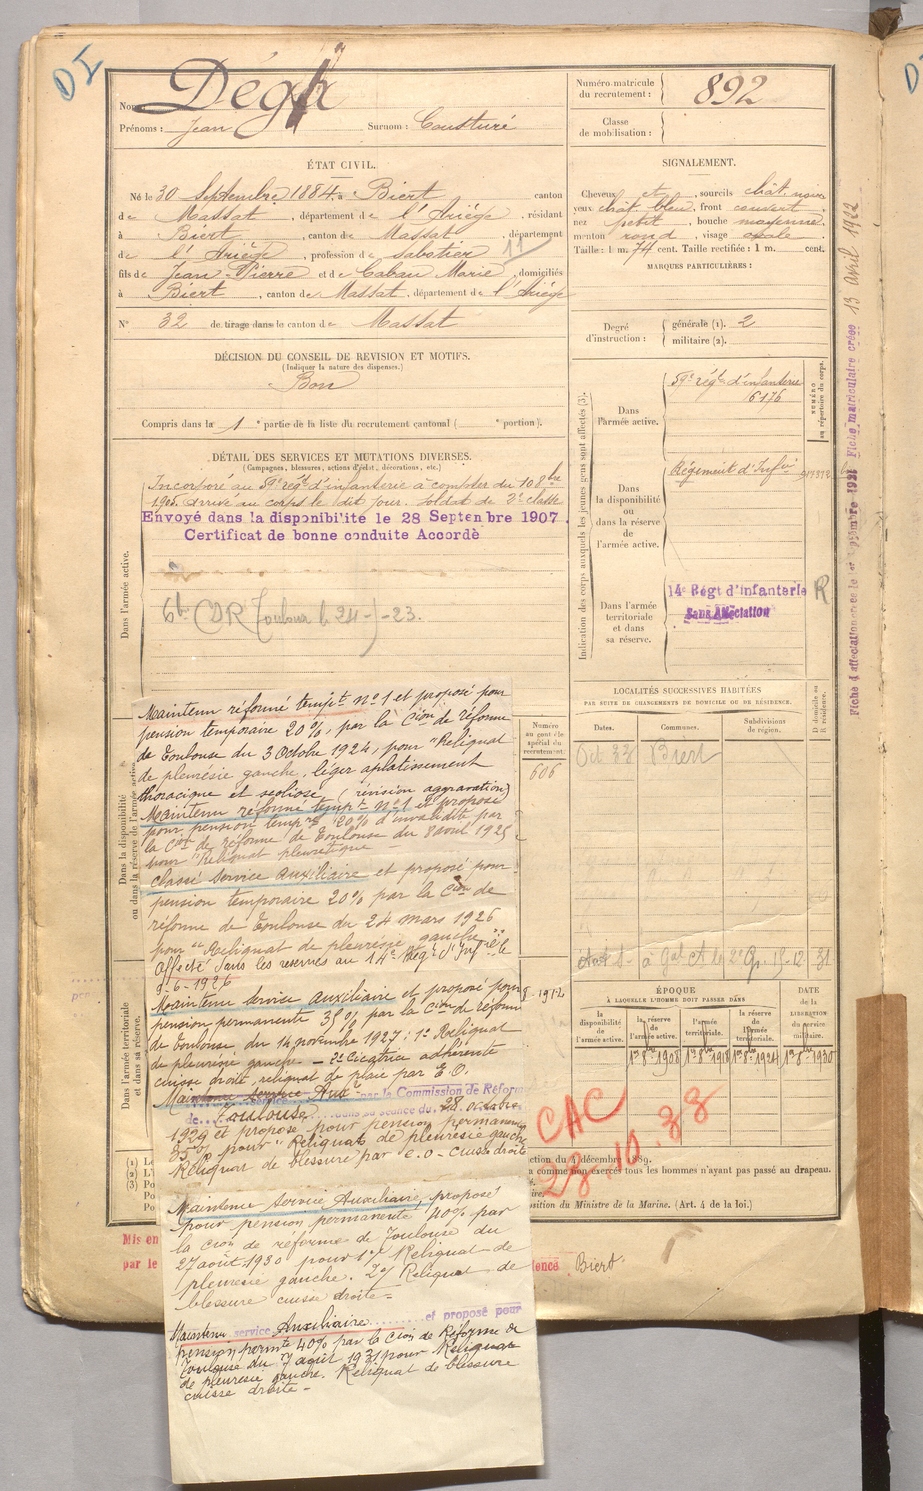 DI
Nom : Dégh
Prénoms : Jean Surnom : Cousturé
Numéro matricule du recrutement : 892
Classe de mobilisation :
ÉTAT CIVIL.
Né le 30 Septembre 1884, à Biert canton
de Massat, département de l'Ariège, résidant
à Biert, canton de Massat, département
de l'Ariège, profession de Sabotier 11
fils de Jean-Pierre et de Cabau Marie, domiciliés
à Biert, canton de Massat, département de l'Ariège
N° 32 de tirage dans le canton de Massat
SIGNALEMENT.
Cheveux et, sourcils chât. noir
yeux chât. bleu, front couvert
nez petit, bouche moyenne
menton rond, visage ovale
Taille : 1 m. 74 cent. Taille rectifiée : 1 m. cent.
MARQUES PARTICULIÈRES :
Degré d'instruction :
générale (1). 2
militaire (2).
DÉCISION DU CONSEIL DE REVISION ET MOTIFS.
(Indiquer la nature des dispenses.)
Bon
Compris dans la 1e partie de la liste du recrutement cantonal ( e portion).
DÉTAIL DES SERVICES ET MUTATIONS DIVERSES.
(Campagnes, blessures, actions d'éclat, décorations, etc.)
Dans l'armée active.
Incorporé au 59e régt d'infanterie à compter du 10 8bre
1905. Arrivé au corps le dit jour. Soldat de 2e classe
Envoyé dans la disponibilité le 28 Septenbre 1907.
Certificat de bonne conduite Accordè
Toulouse le 24-7-23.
Indication des corps auxquels les jeunes gens sont affectés (3).
Dans l'armée active.
59e régt d'infanterie
6176
NUMÉRO au répertoire du corps.
Dans la disponibilité ou dans la réserve de l'armée active.
Régiment d'Infie
Dans l'armée territoriale et dans sa réserve.
14e Régt d'infanterie R
Sans Affectation
Fiche matriculaire créée 13 Avril 1922
LOCALITÉS SUCCESSIVES HABITÉES
PAR SUITE DE CHANGEMENTS DE DOMICILE OU DE RÉSIDENCE.
Dates. Communes. Subdivisions de région. D domicile ou R résidence.
Oct 33 Biert
Dans la disponibilité ou dans la réserve de l'armée active
Maintenu réformé tempt n°1 et proposé pour
pension temporaire 20%, par la Cion de réforme
de Toulouse du 3 Octobre 1924, pour "Reliquat
de pleurésie gauche, léger aplatissement
thoracique et scoliose (révision aggravation)
Maintenu réformé tempt n°1 et proposé
pour pension tempre 20% d'invalidité par
la Con de réforme de Toulouse du 8 avril 1925
pour "Reliquat pleurétique
classé Service Auxiliaire et proposé pour
pension temporaire 20% par la Cion de
réforme de Toulouse du 24 mars 1926
pour "Reliquat de pleurésie gauche"
Affecté dans les réserves au 14e Régt d'Infie le
9-6-1926
Maintenu Service Auxiliaire et proposé pour
pension permanente 35% par la Cion de réforme
de Toulouse du 14 novembre 1927 : 1° Reliquat
de pleurésie gauche - 2° Cicatrice adhérente
cuisse droite, reliquat de plaie par E.O.
Maintenu Service Auxre par la Commission de Réforme
de Toulouse dans sa séance du 28 octobre
1929 et proposé pour pension permanente
35% pour "Reliquat de pleurésie gauche
Reliquat de blessure par e.o - cuisse droite
Maintenu Service Auxiliaire, proposé
pour pension permanente 40% par
la Cion de réforme de Toulouse du
27 août 1930 pour 1°/ Reliquat de
pleurésie gauche. 2°/ Reliquat de
blessure cuisse droite =
Maintenu service Auxiliaire et proposé pour
pension permte 40% par la Cion de Réforme de
Toulouse du 7 août 1931 pour Reliquat
de pleurésie gauche. Reliquat de blessure
cuisse droite -
Dans l'armée territoriale et dans sa réserve.
Numéro au contrôle spécial du recrutement
606
ÉPOQUE
À LAQUELLE L'HOMME DOIT PASSER DANS
la disponibilité de l'armée active.
la réserve de l'armée active.
l'armée territoriale.
la réserve de l'armée territoriale.
DATE de la LIBÉRATION du service militaire.
1er 8bre 1908 1er 8bre 1918 1er 8bre 1924 1er 8bre 1930
CAC
23.10.33
ction du 4 décembre 1889.
a comme non exercés tous les hommes n'ayant pas passé au drapeau.
position du Ministre de la Marine. (Art. 4 de la loi.)
Mis en
par le
Biert